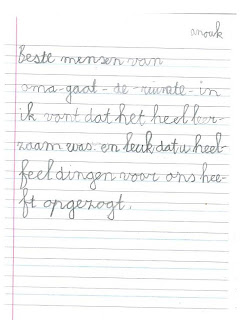 anouk
Beste mensen van
oma-gaat-de-ruimte-in
ik vont dat het heel leer-
zaam was. en leuk dat u heel
feel dingen voor ons hee-
ft opgezogt.